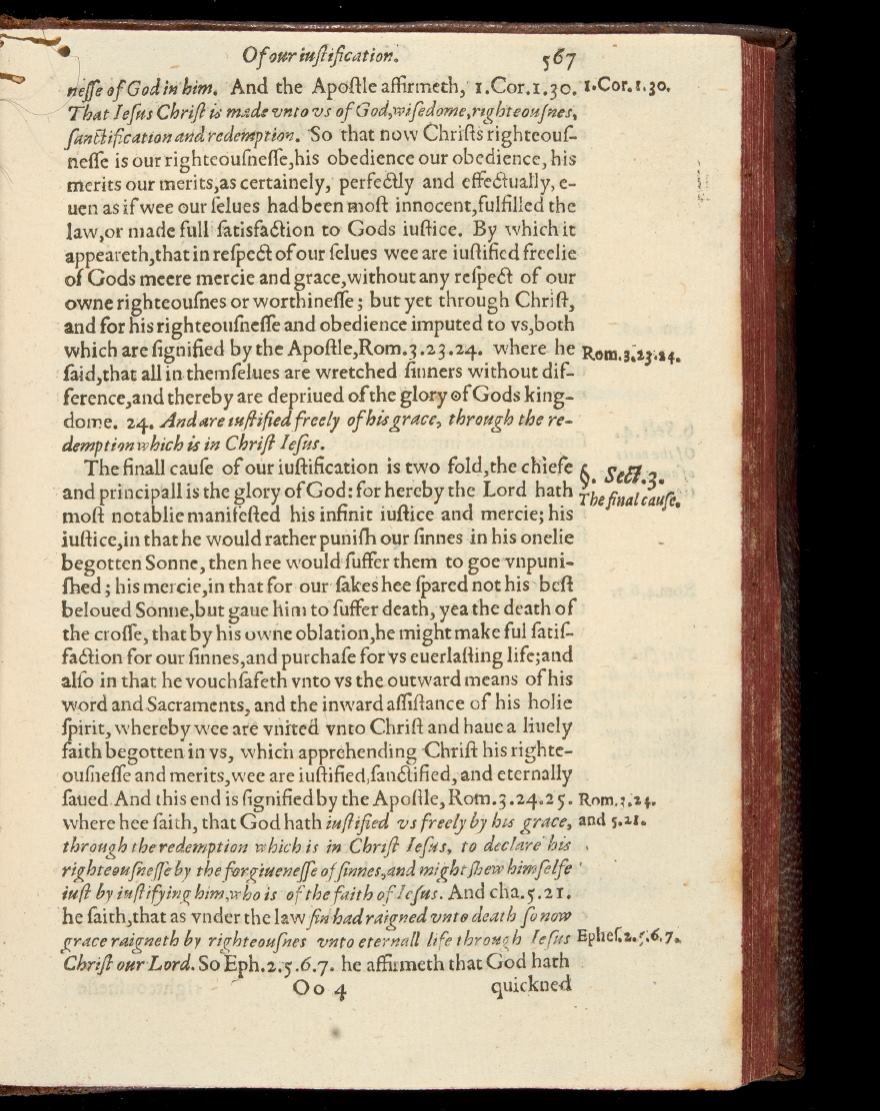 Of our iuſtification. 567
neſſe of God in him. And the Apoſtle affirmeth, 1.Cor.1.30. 1.Cor.1.30.
That Ieſus Chriſt is made vnto vs of God,wiſedome,righteouſnes,
ſanctification and redemption. So that now Chriſts righteouſ-
neſſe is our righteouſneſſe,his obedience our obedience, his
merits our merits,as certainely, perfectly and effectually, e-
uen as if wee our ſelues had been moſt innocent,fulfilled the
law,or made full ſatisfaction to Gods iuſtice. By which it
appeareth,that in reſpect of our ſelues wee are iuſtified freelie
of Gods meere mercie and grace,without any reſpect of our
owne righteouſnes or worthineſſe; but yet through Chriſt,
and for his righteouſneſſe and obedience imputed to vs,both
which are ſignified by the Apoſtle,Rom.3.23.24. where he Rom.3.23.24.
ſaid,that all in themſelues are wretched ſinners without dif-
ference,and thereby are depriued of the glory of Gods king-
dome. 24. And are iuſtified freely of his grace, through the re-
demption which is in Chriſt Ieſus.
The finall cauſe of our iuſtification is two fold,the chiefe §. Sect.3.
and principall is the glory of God: for hereby the Lord hath The final cauſe.
moſt notablie manifeſted his infinit iuſtice and mercie; his
iuſtice,in that he would rather puniſh our ſinnes in his onelie
begotten Sonne, then hee would ſuffer them to goe vnpuni-
ſhed; his mercie,in that for our ſakes hee ſpared not his beſt
beloued Sonne,but gaue him to ſuffer death, yea the death of
the croſſe, that by his owne oblation,he might make ful ſatiſ-
faction for our ſinnes,and purchaſe for vs euerlaſting life;and
alſo in that he vouchſafeth vnto vs the outward means of his
word and Sacraments, and the inward aſſiſtance of his holie
ſpirit, whereby wee are vnited vnto Chriſt and haue a liuely
faith begotten in vs, which apprehending Chriſt his righte-
ouſneſſe and merits,wee are iuſtified,ſanctified, and eternally
ſaued And this end is ſignified by the Apoſtle, Rom.3.24.25. Rom.3.24.
where hee ſaith, that God hath iuſtified vs freely by his grace, and 5.21.
through the redemption which is in Chriſt Ieſus, to declare his
righteouſneſſe by the forgiueneſſe of ſinnes,and might ſhew himſelfe
iuſt by iuſtifying him,who is of the faith of Ieſus. And cha.5.21.
he ſaith,that as vnder the law ſin had raigned vnto death ſo now
grace raigneth by righteouſnes vnto eternall life through Ieſus Epheſ.2.5.6.7.
Chriſt our Lord. So Eph.2.5.6.7. he affirmeth that God hath
Oo 4 quickned